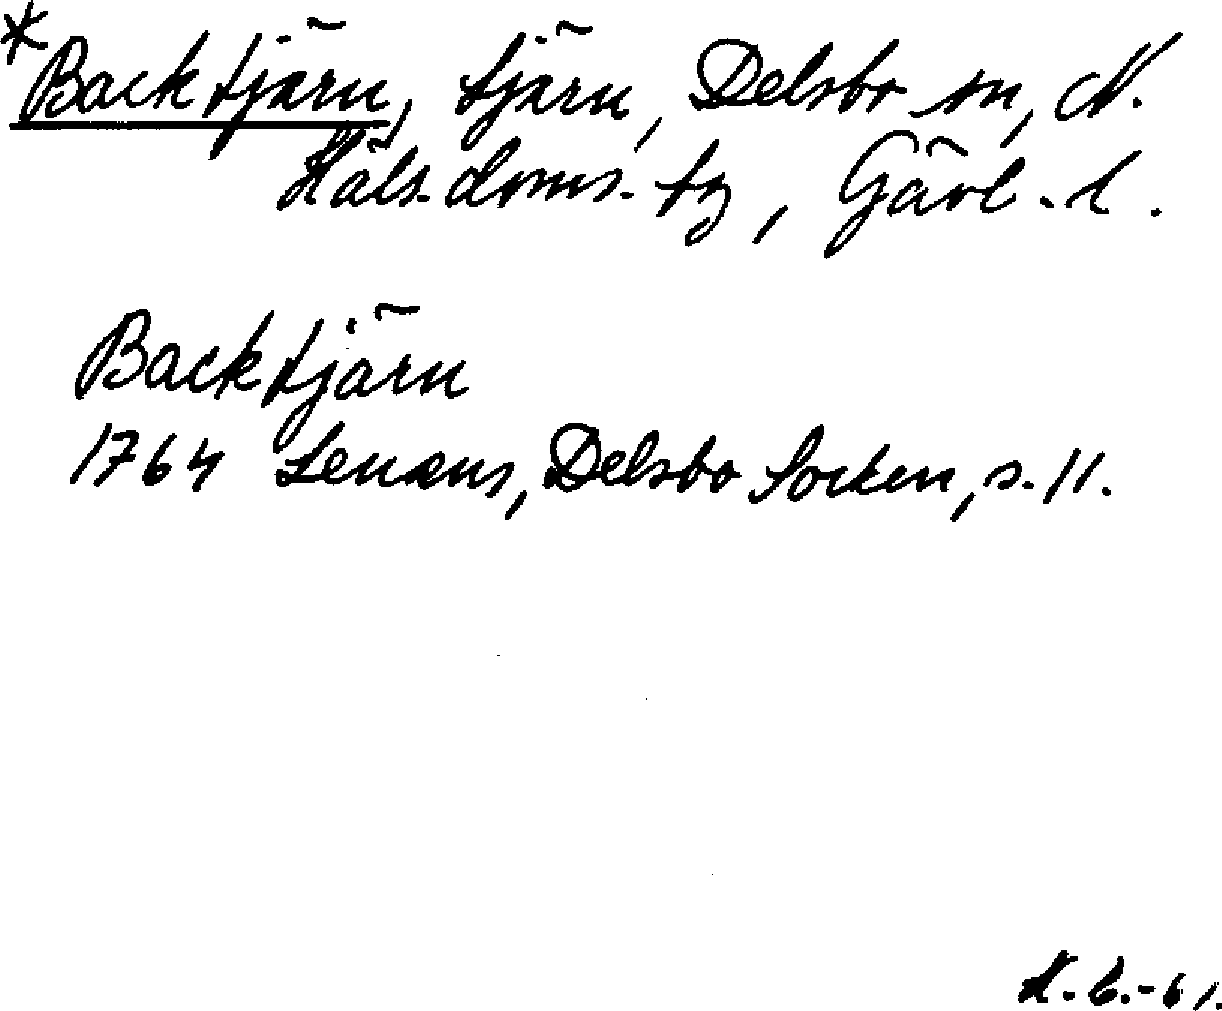 *Backtjärn, tjärn, Delsbo sn, N.
Häls. doms. tg, Gävl. l.
Backtjärn
1764 Lenæus, Delsbo Socken, s. 11.